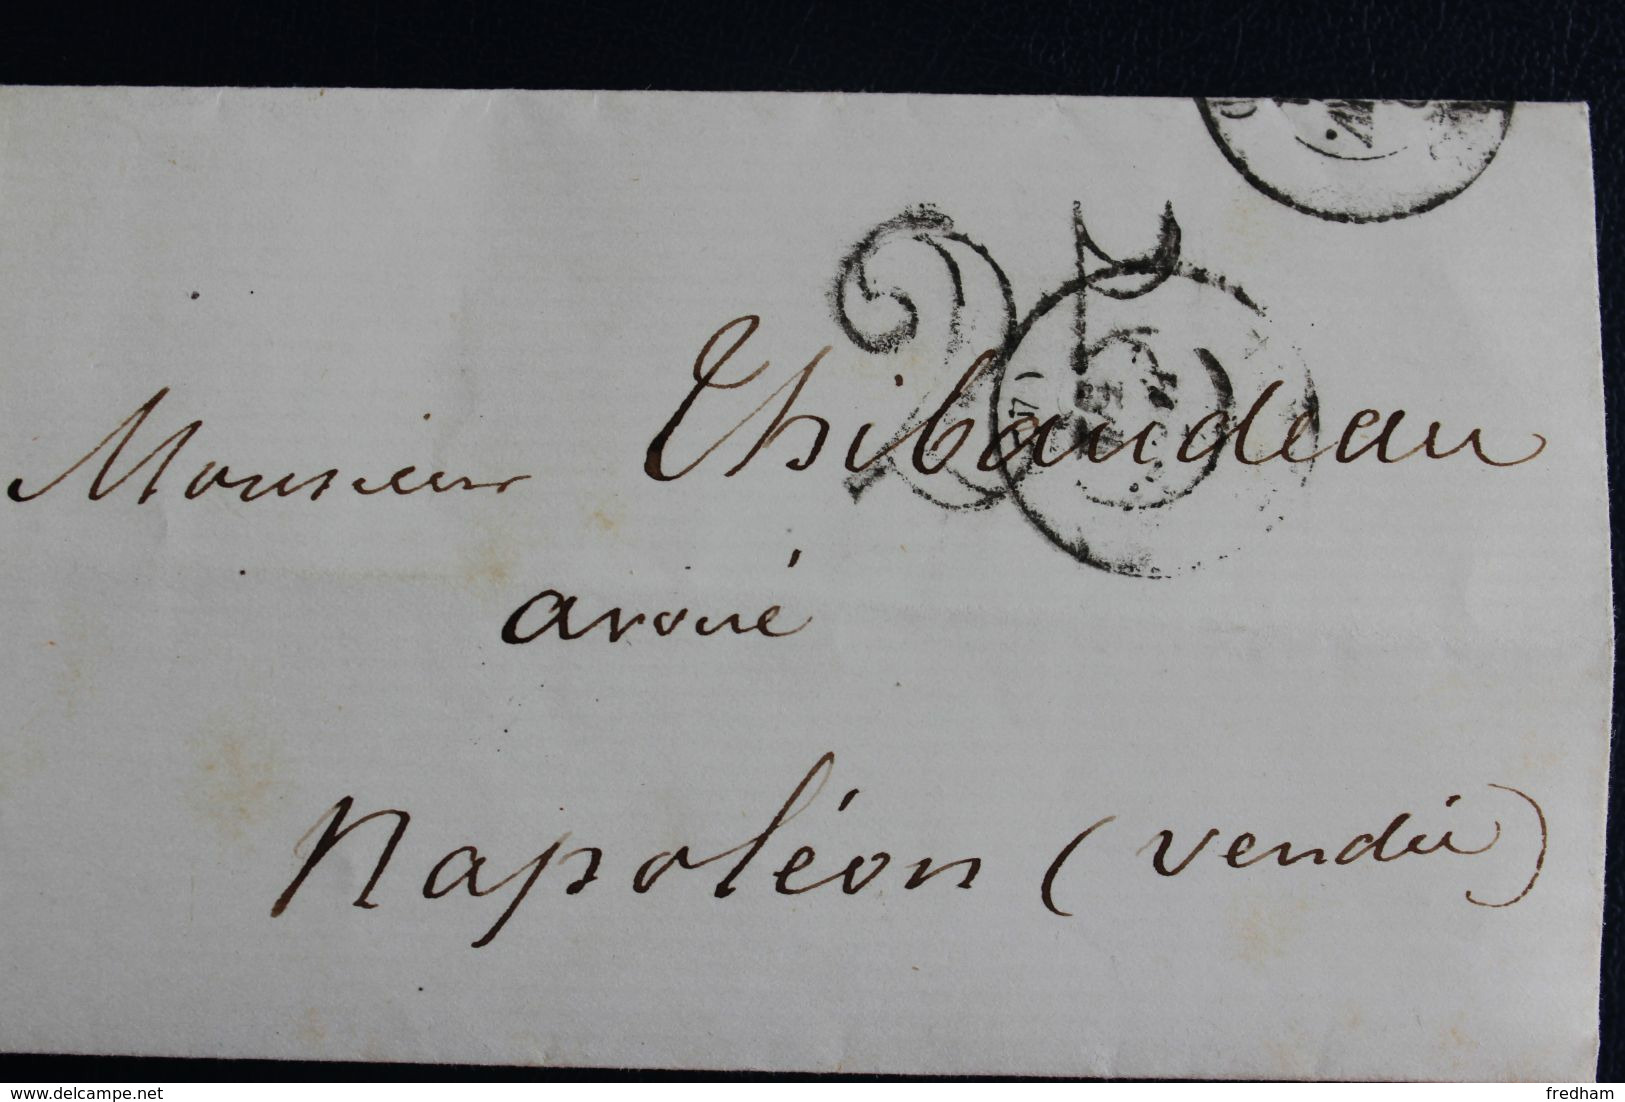 25
Monsieur Thibaudeau
avoué
Napoléon (vendée)
www.delcampe.net
fredham